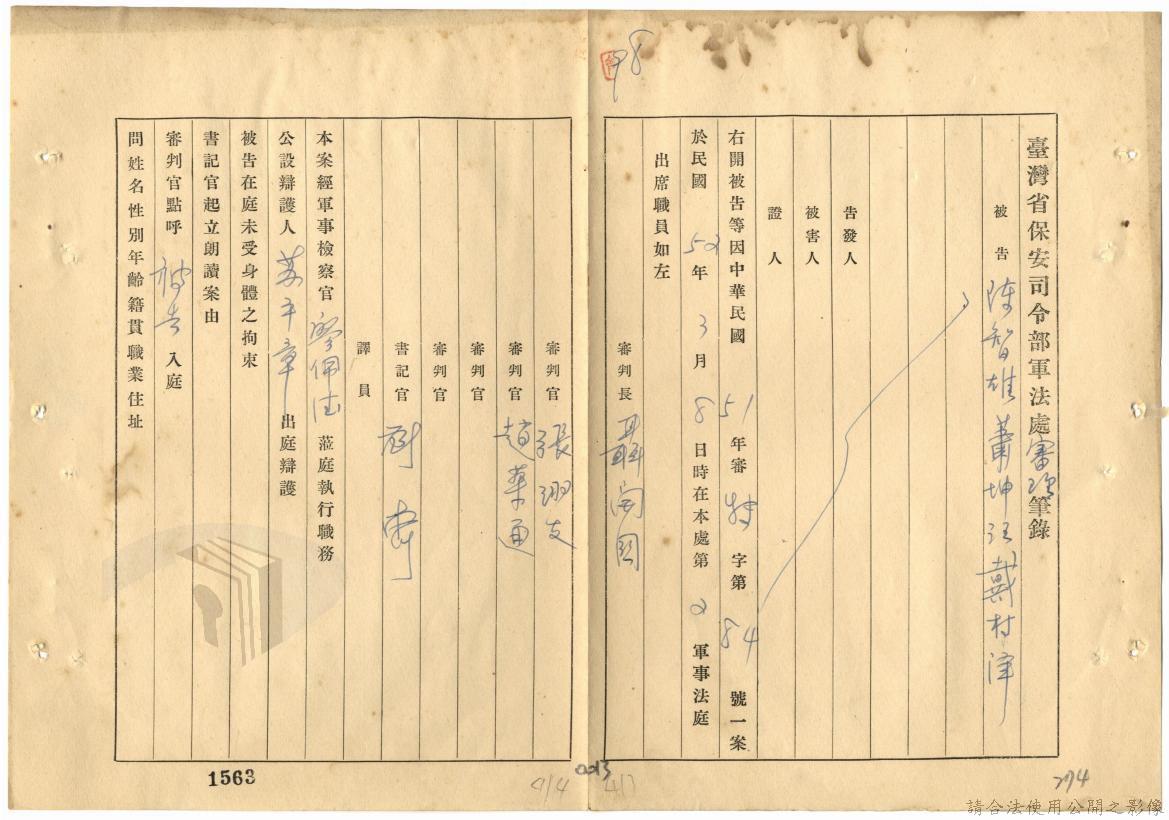 98
臺灣省保安司令部軍法處審理筆錄
被告 陳智雄 蕭坤旺 戴村澤
告發人
被害人
證人
右開被告等因中華民國51年審特字第84號一案
於民國52年3月8日時在本處第2軍事法庭
出席職員如左
審判長 聶開國
審判官 張翊支
審判官 趙葉通
審判官
審判官
書記官
譯員
本案經軍事檢察官 佩 蒞庭執行職務
公設辯護人 蘇平章 出庭辯護
被告在庭未受身體之拘束
書記官起立朗讀案由
審判官點呼 被告 入庭
問姓名性別年齡籍貫職業住址
1563
0013
414
413
274
請合法使用公開之影像